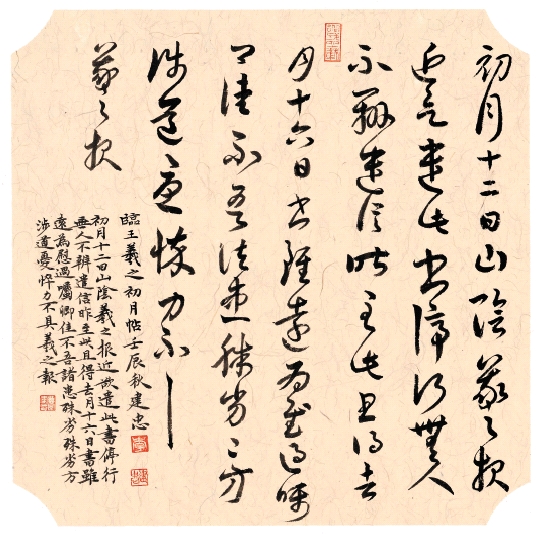 初月十二日山陰羲之報
近欲遣此書停行無人
不辦遣信昨至此且得去
月十六日書雖遠為慰過囑
卿佳不吾諸患殊劣〻方
涉道憂悴力不具
羲之報
臨王羲之初月帖壬辰秋建忠
初月十二日山陰羲之报近故遣此書停行
無人不辨遣信昨至此且得去月十六日書雖
遠為慰過囑卿佳不吾諸患殊劣殊劣方
涉道憂悴力不具羲之報